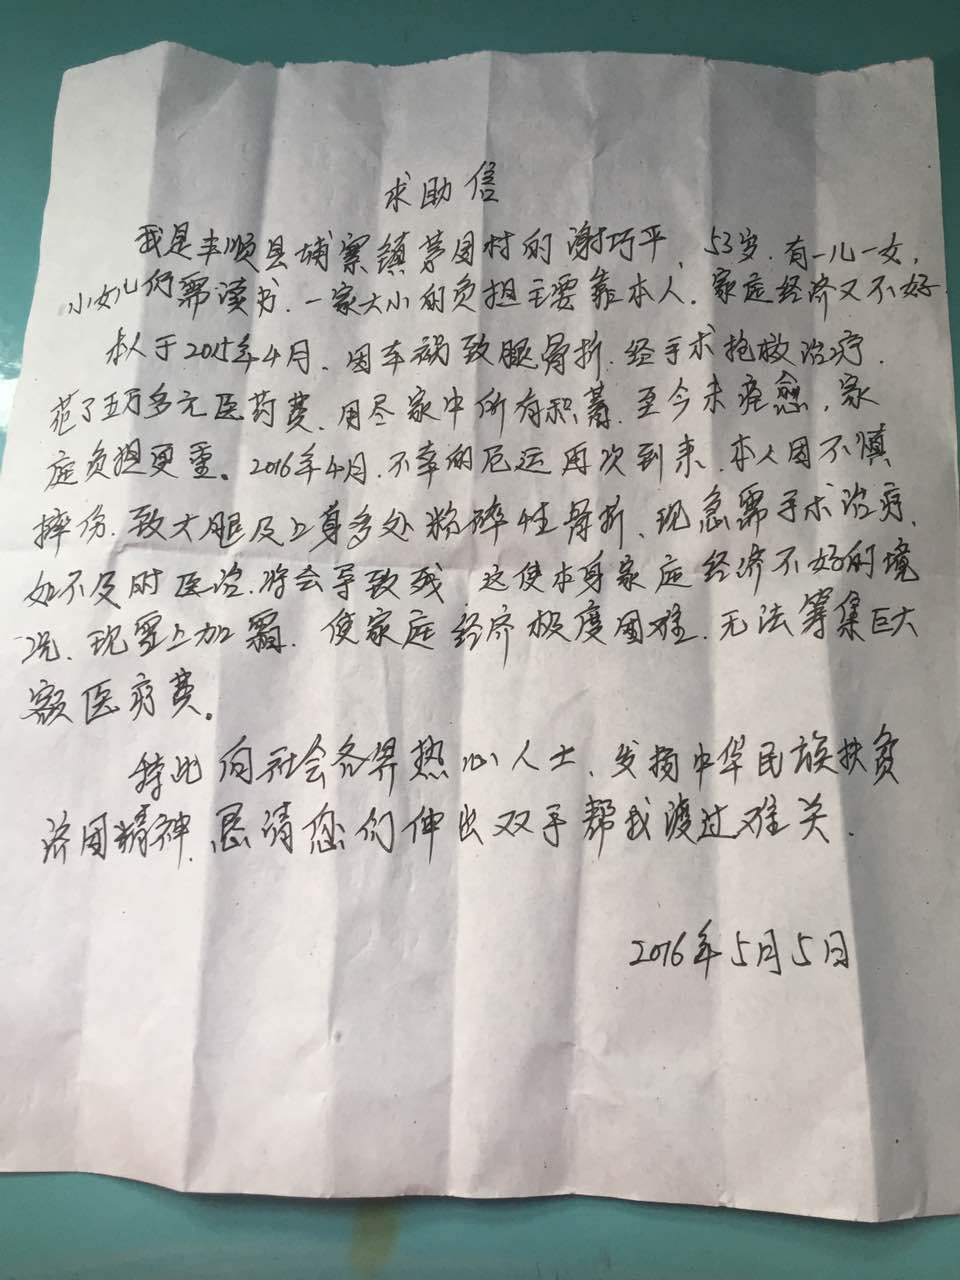 求助信
我是丰顺县埔寨镇茅园村的谢巧平、53岁.有一儿一女,
小女儿仍需读书.一家大小的负担主要靠本人.家庭经济又不好.
本人于2015年4月、因车祸致腿骨折.经手术抢救治疗.
花了五万多元医药费、用尽家中所有积蓄.至今未痊愈,家
庭负担更重。2016年4月.不幸的厄运再次到来.本人因不慎
摔伤.致大腿及上身多处粉碎性骨折、现急需手术治疗、
如不及时医治.将会导致残.这使本身家庭经济不好的境
况、现雪上加霜.使家庭经济极度困难.无法筹集巨大
额医疗费。
特此向社会各界热心人士、发扬中华民族扶贫
济困精神.恳请您们伸出双手帮我渡过难关.
2016年5月5日